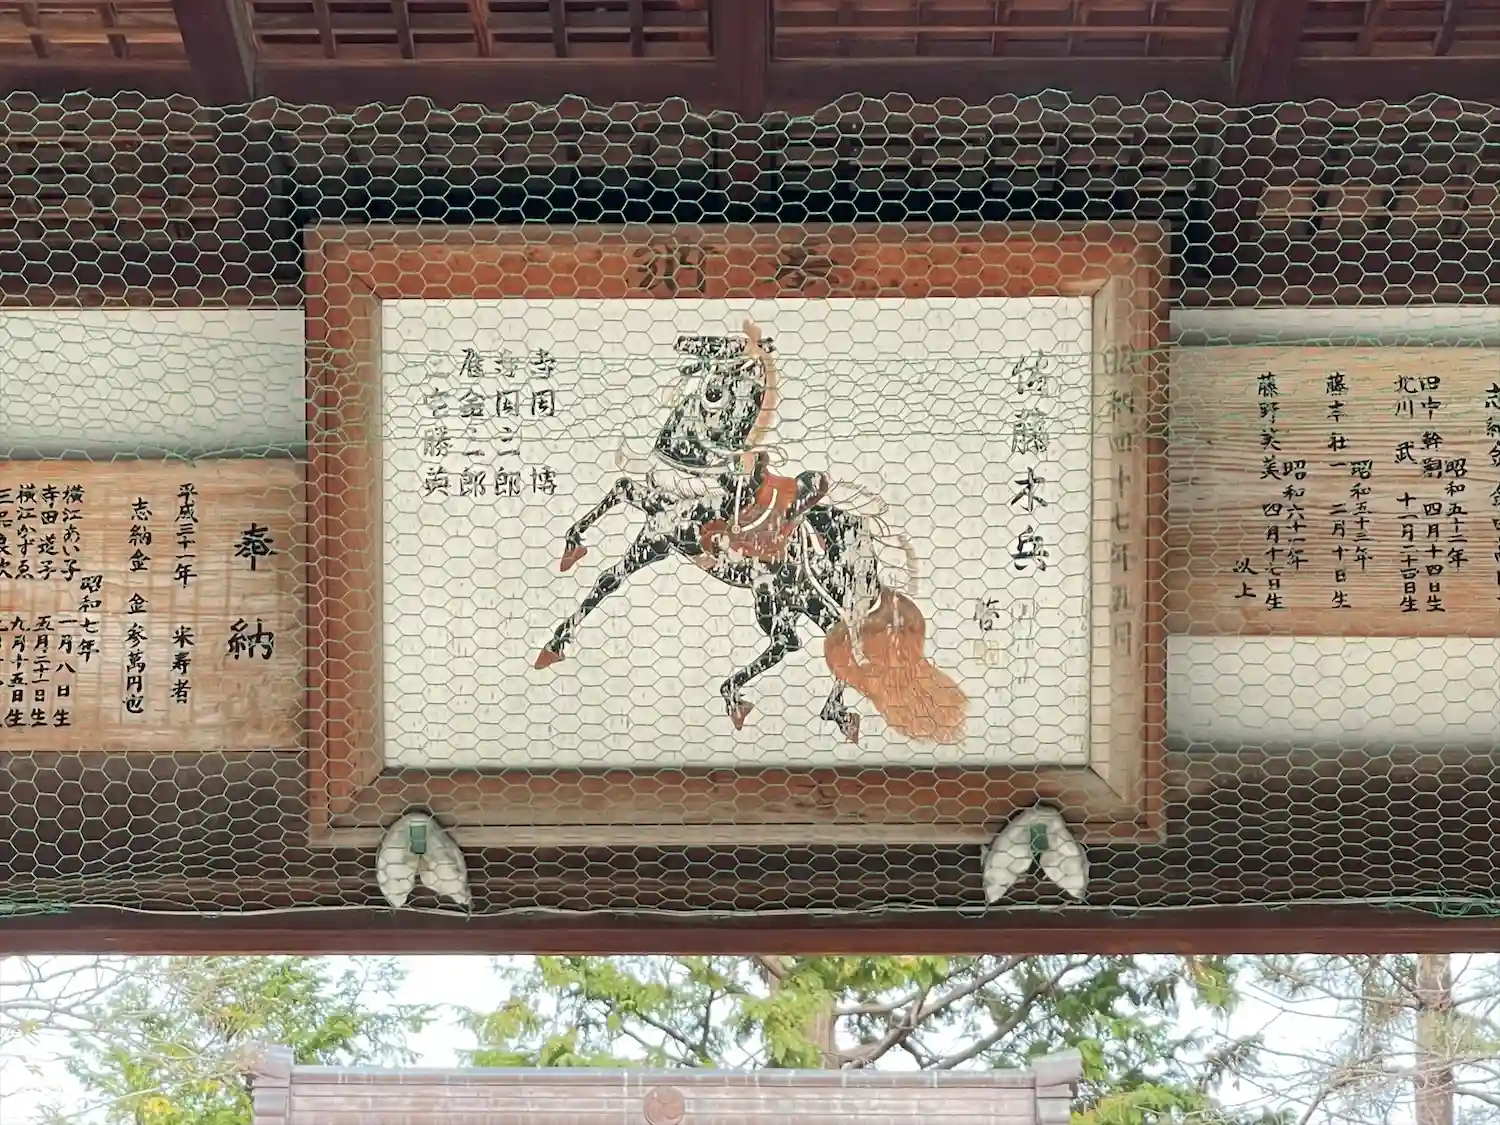 奉納
昭和四十七年五月
佐藤木兵
寺岡 博
寺岡三郎
雁金三郎
三宅勝英
昭和五十二年
田中 幹 四月十四日生
北川 武 十一月二十四日生
昭和五十三年
藤本 壮一 二月十日生
昭和六十一年
藤野美美 四月十七日生
以上
奉納
平成三十一年 米寿者
志納金 金参萬円也
昭和七年
横江あい子 一月八日生
寺田道子 五月二十一日生
横江かずゑ 九月十五日生